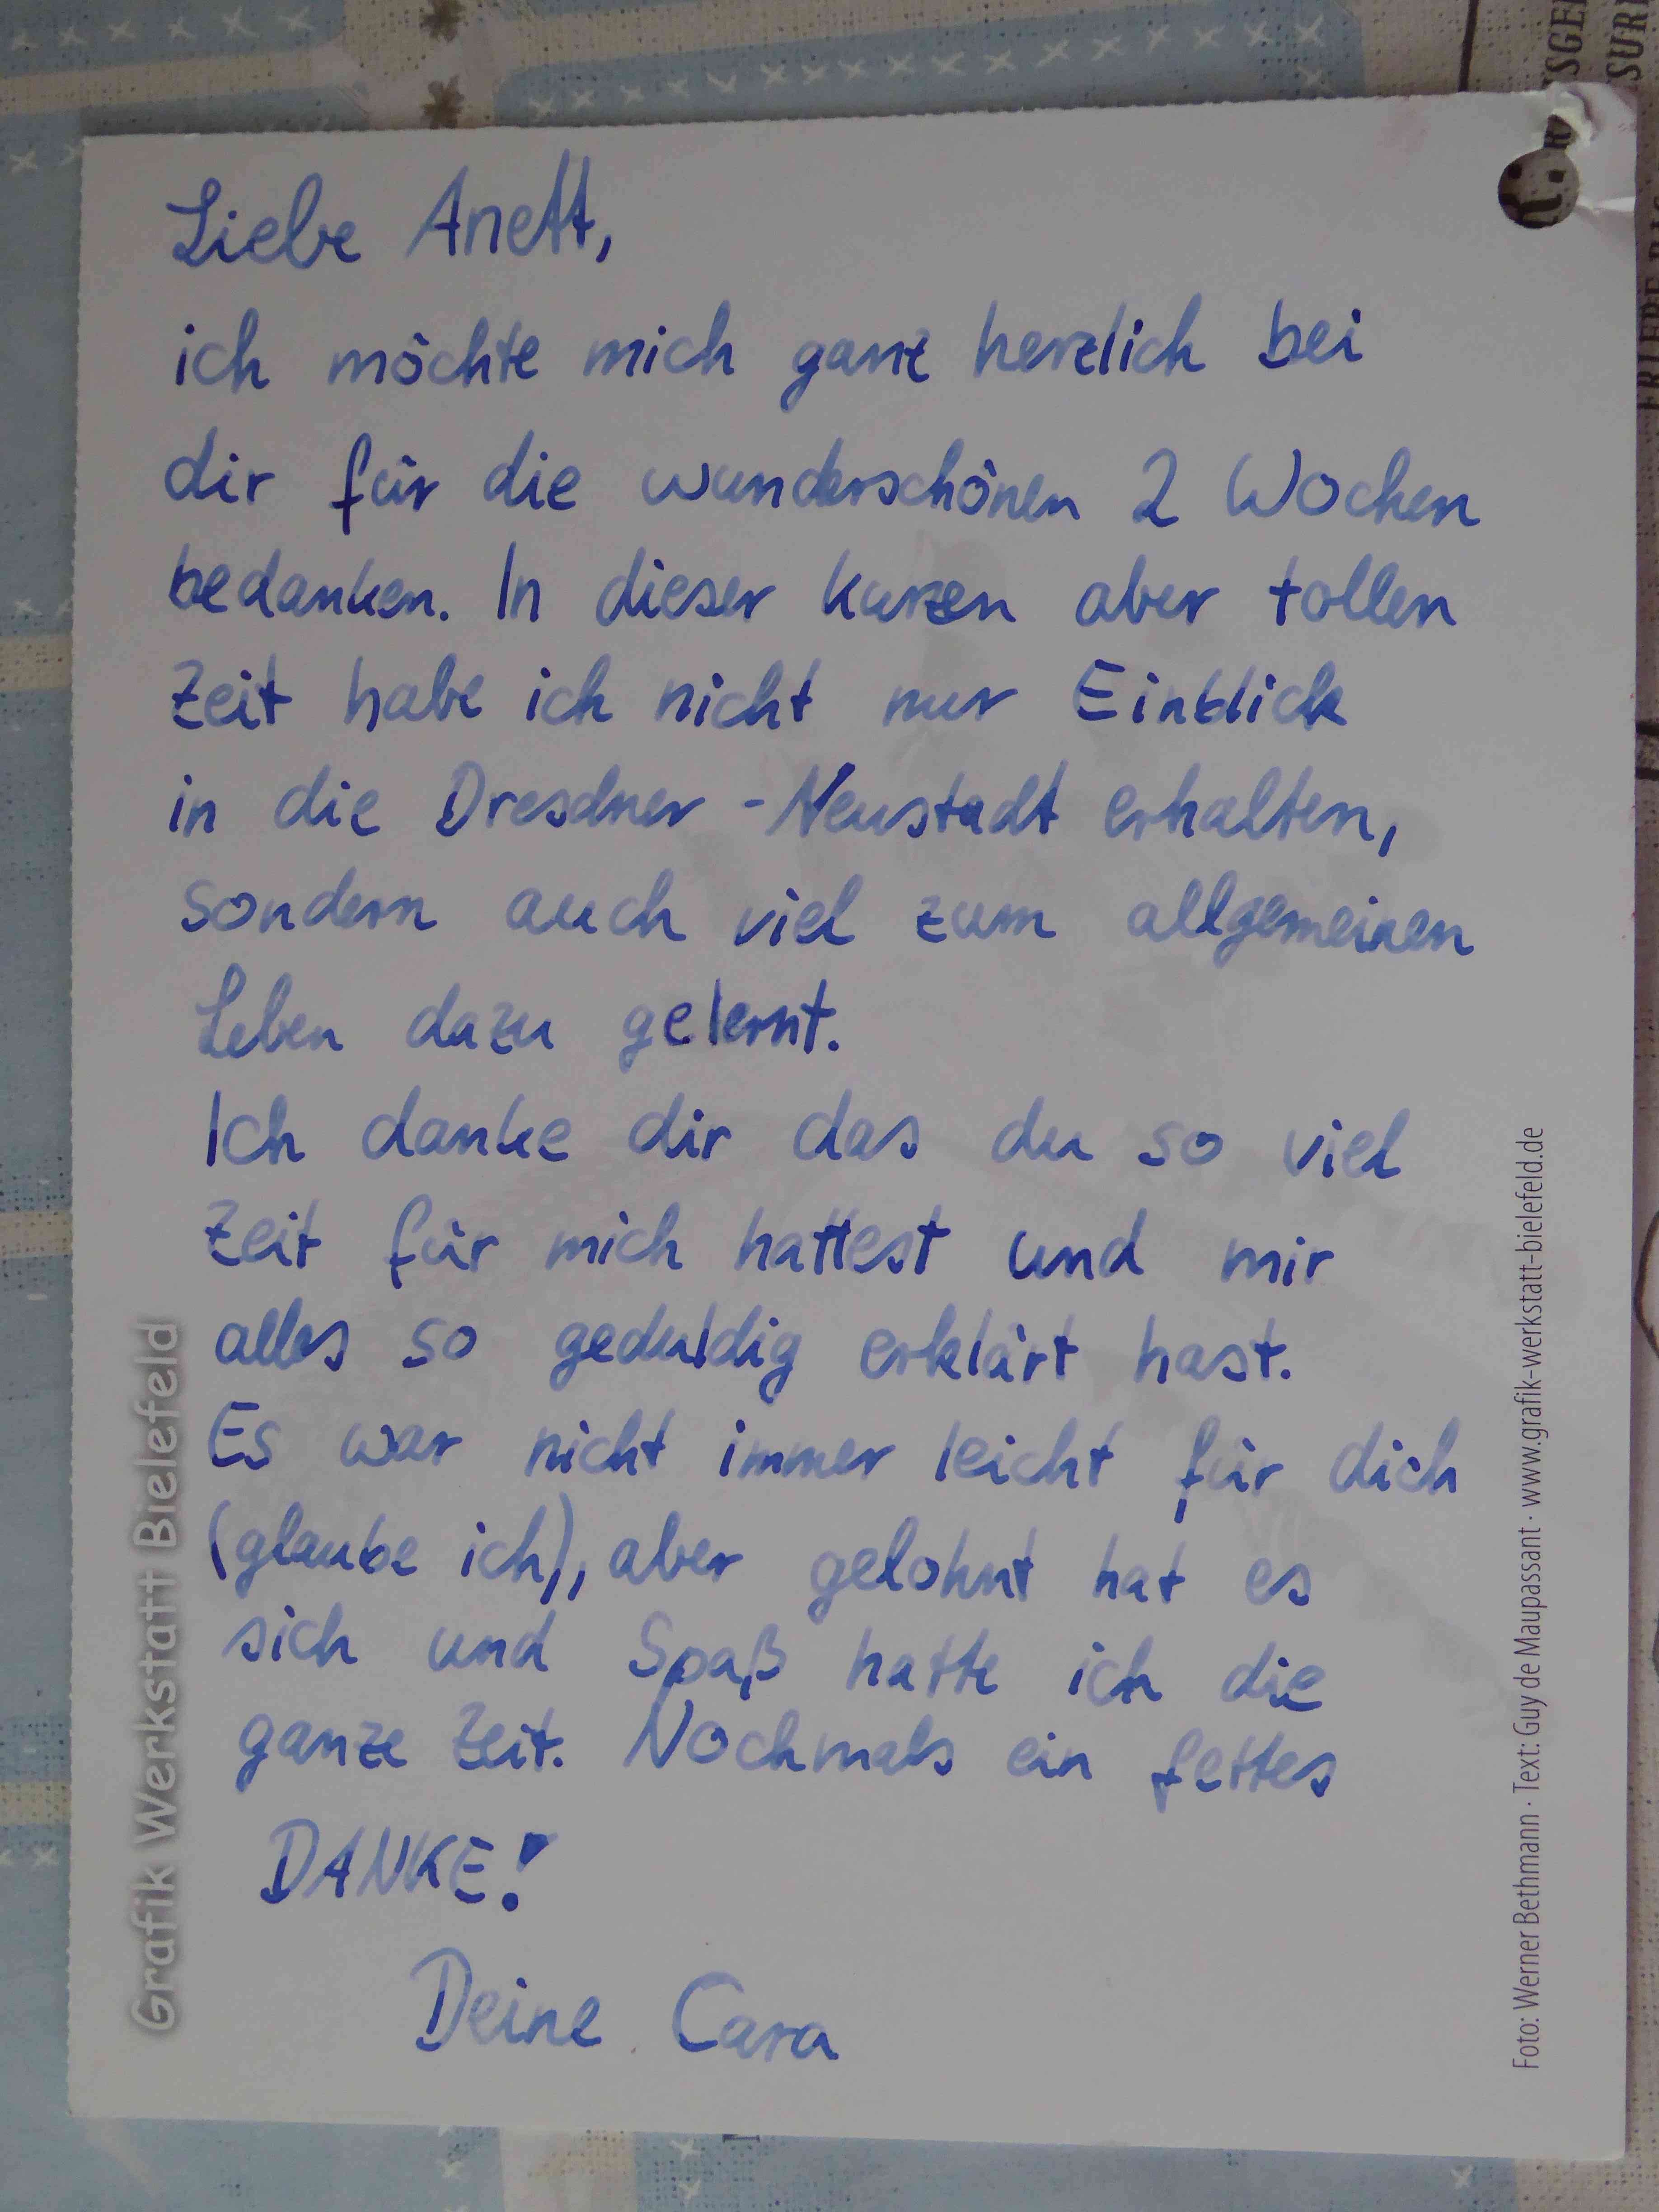 Liebe Anett,
ich möchte mich ganz herzlich bei
dir für die wunderschönen 2 Wochen
bedanken. In dieser kurzen aber tollen
Zeit habe ich nicht nur Einblick
in die Dresdner -Neustadt erhalten,
sondern auch viel zum allgemeinen
Leben dazu gelernt.
Ich danke dir das du so viel
Zeit für mich hattest und mir
alles so geduldig erklärt hast.
Es war nicht immer leicht für dich
(glaube ich), aber gelohnt hat es
sich und Spaß hatte ich die
ganze Zeit. Nochmals ein fettes
DANKE!
Deine Cara
Grafik Werkstatt Bielefeld
Foto: Werner Bethmann · Text: Guy de Maupassant · www.grafik-werkstatt-bielefeld.de